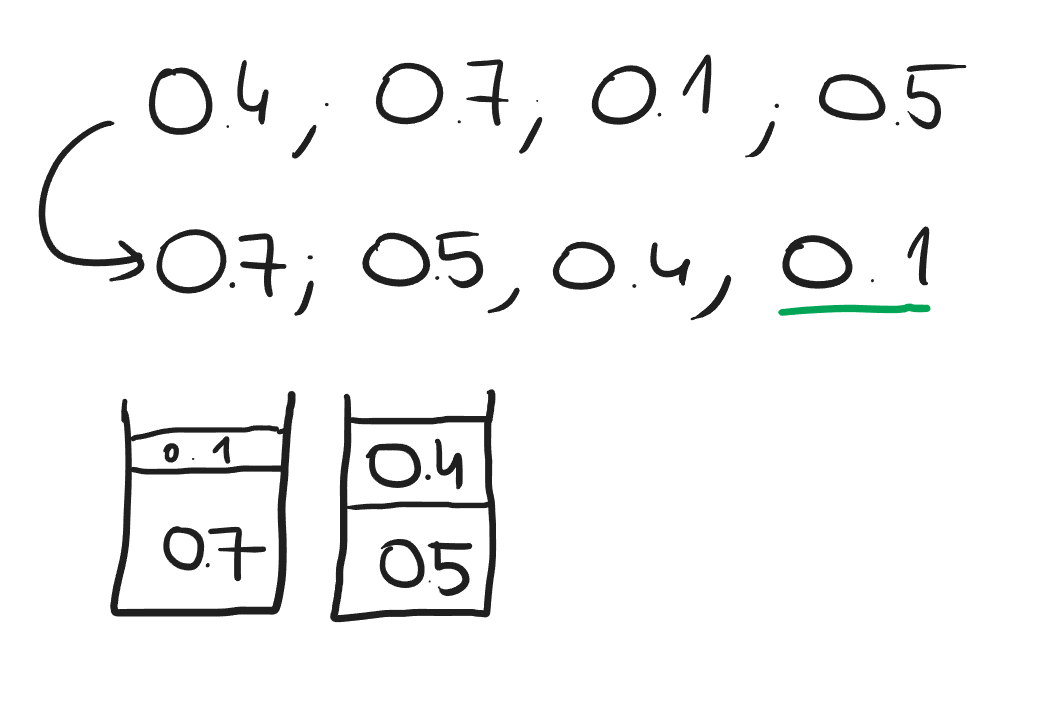 0.4; 0.7; 0.1; 0.5
0.7; 0.5, 0.4, 0.1
0.1
0.7
0.4
0.5